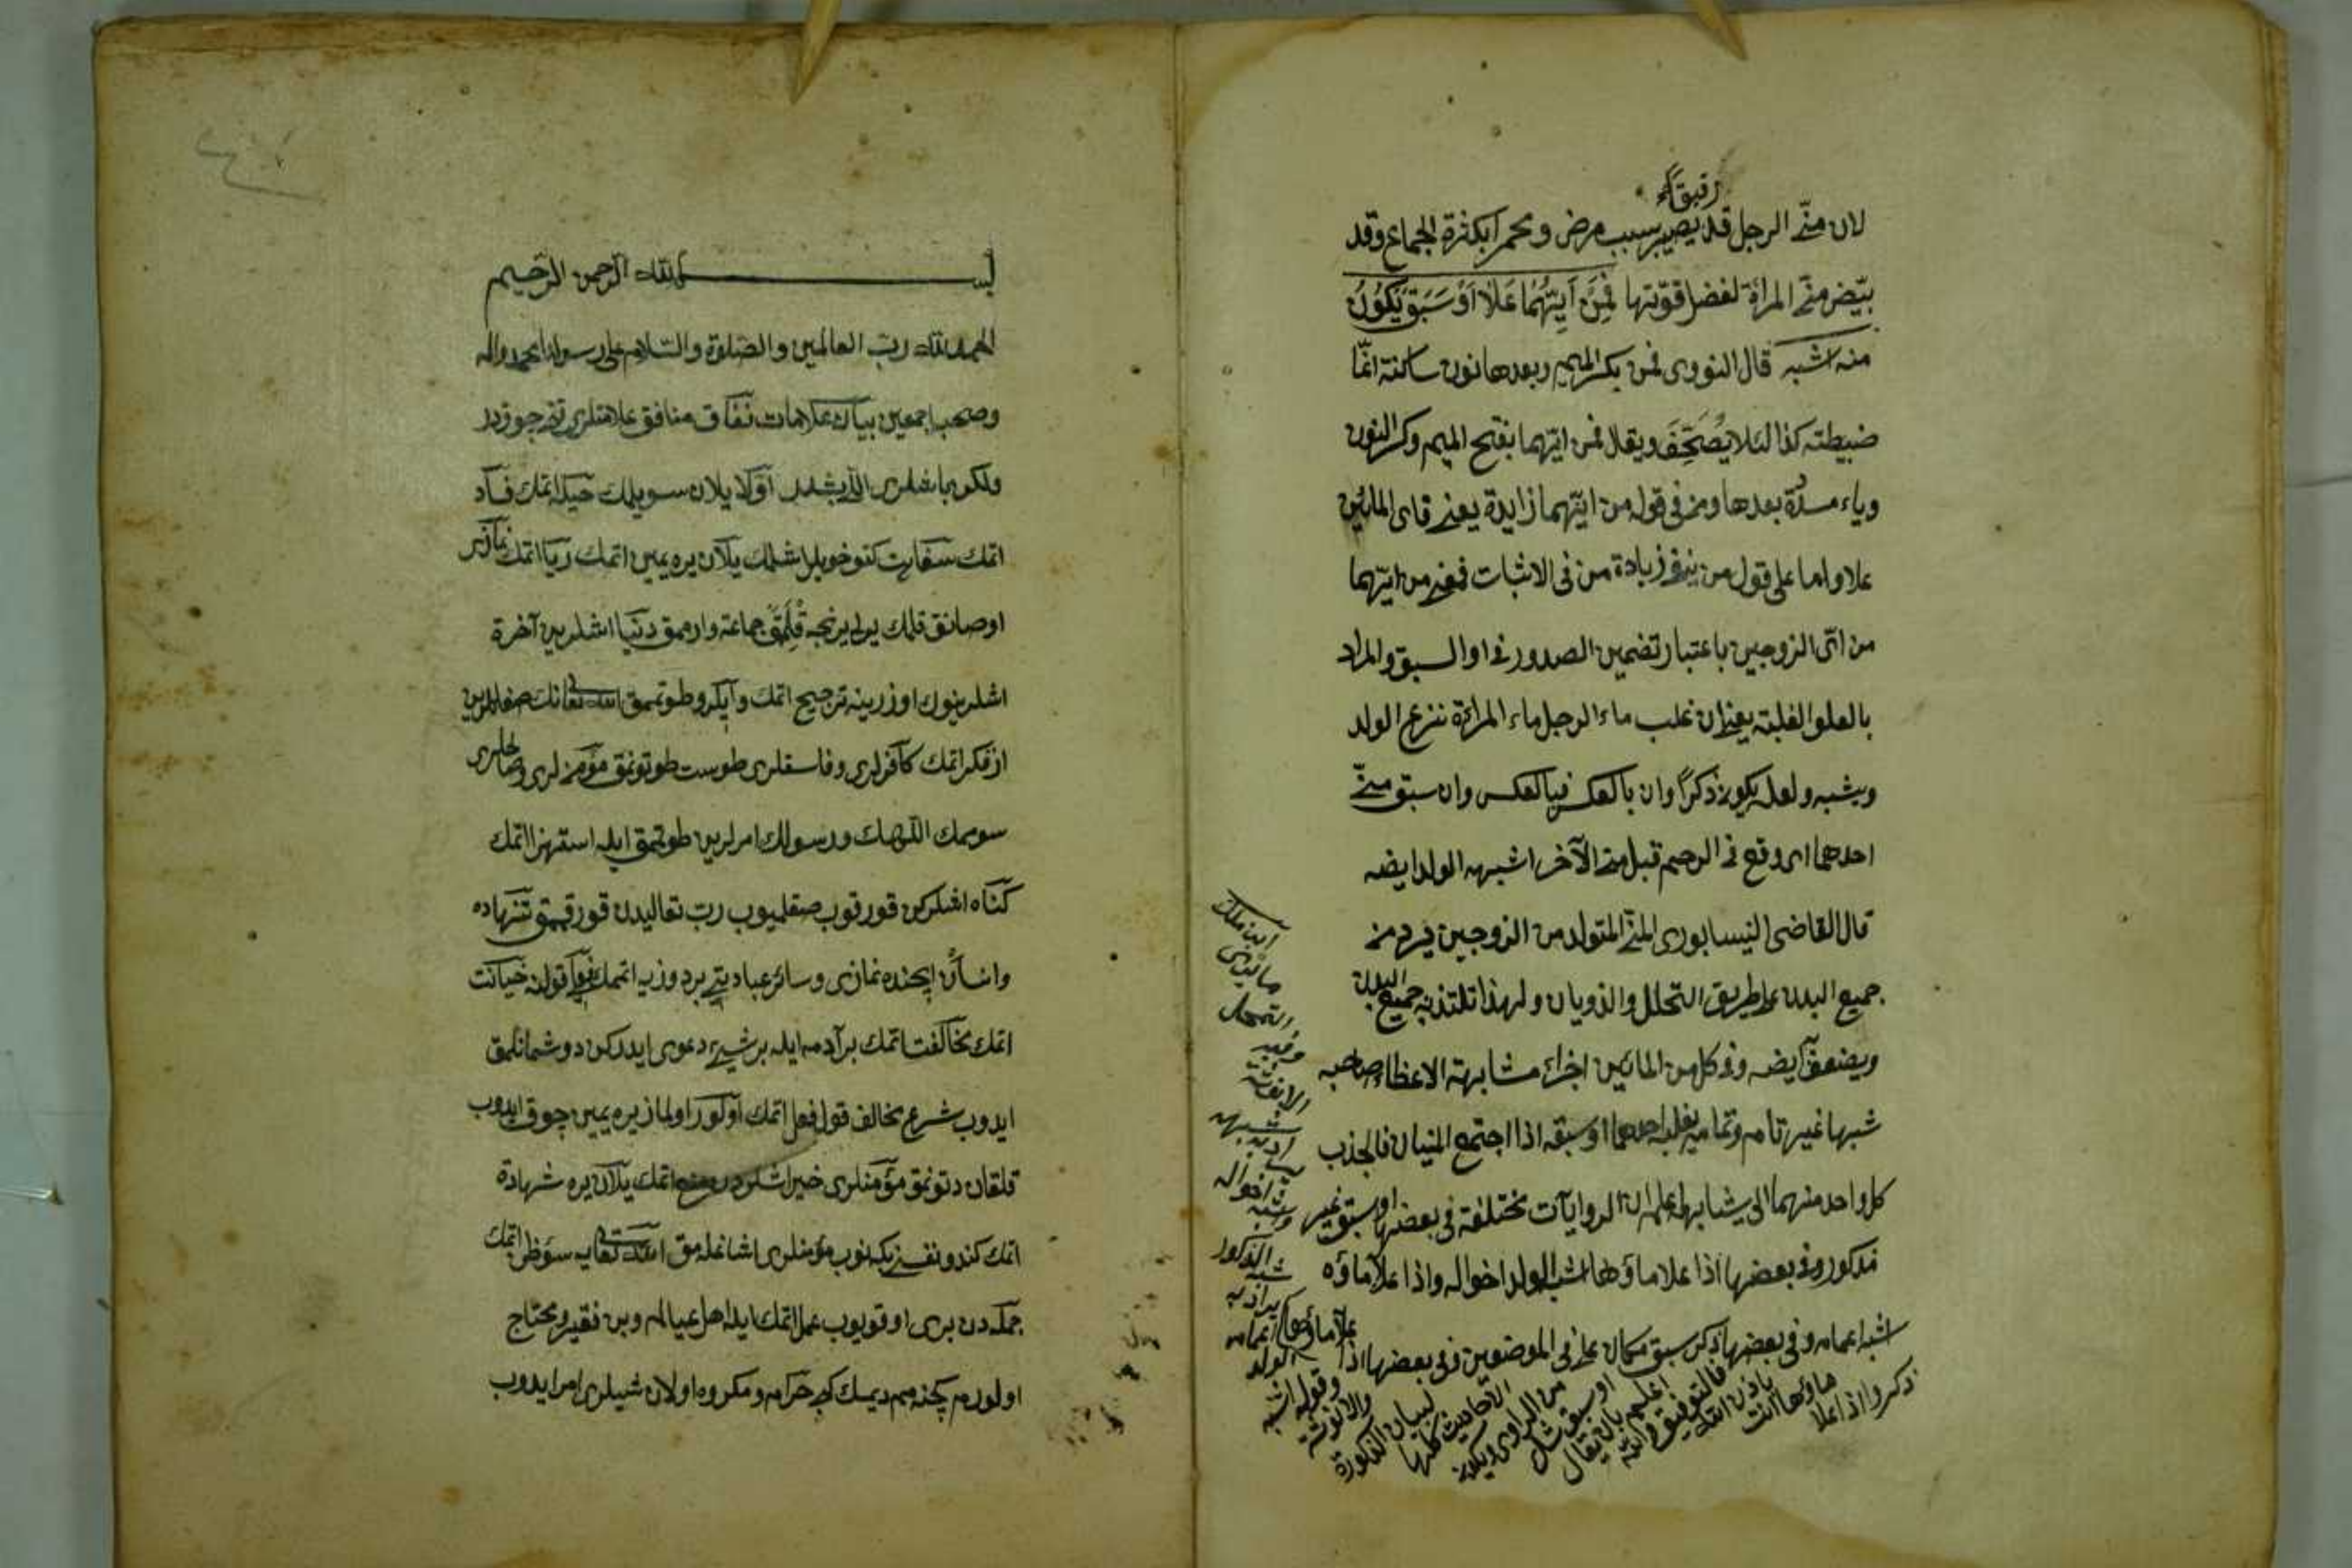 رقيقا
لان منّى الرجل قد يصير بسبب مرض ومحمرا بكثرة الجماع وقد
يبيّض منّى المرأة لفضل قوّتها فَمِنْ اَيِّهُمَا عَلَا اَوْ سَبَقَ يَكُونُ
منه الشبه قال النووى فمن بكسر الميم وبعدها نون ساكنة انمّا
ضبطته كذا لئلا يُصَحَّفَ ويقال فمن ايّهما بفتح الميم وكسر النون
وياء مسدّدة بعدها ومن فى قوله من ايّهما زايدة يعنى فاى المائين
علا واما على قول من ينفى زيادة من فى الاثبات فمعنى من ايّهما
من اتى الزوجين باعتبار تضمين الصدور فى او السبق والمراد
بالعلو الغلبة يعنى ان غلب ماء الرجل ماء المراءة نزع الولد
ويشبه ولعله يكون ذكرًا وان بالعكس فبالعكس وان سبق منّى
احدهما اى وقع فى الرحم قبل منى الآخر اشبهه الولد ايضه
قال القاضى النيسابورى المنّى المتولد من الزوجين فرد من
جميع البدن على طريق التحلل والذوبان ولهذا تلتذ به جميع البدن
ويضعف ايضه وفى كل من المائين اجزاء مشابهة الاعظاء صاحبه
شبها غير تام وتمامه بغلبة احدهما او سبقه اذا اجتمع المنيان فالجذب
كل واحد منهما الى يشابهه اعلم ان الروايآت مختلفة فى بعضها او سبق غير
مذكور وفى بعضها اذا علا ماؤها اشبه الولد اخواله واذا علا ماؤه
اشبه اعمامه وفى بعضها ذكر سبق مكان على فى الموضعين وفى بعضها اذا
ذكر واذا علا
ماؤها انث
باذن الله
فالتوفيق
اعلم بان يقال
او سبق شك
من الراوى ويكون
الاحاديث كلها
لبيان الذكورة
والانوثة
وقوله اشبه
الولد
اعمامه
يراد به
شبه الذكور
وشبه
اخواله
يراد به
شبهه
الانوثة
وفيه
التمحل
ابن ملك
بسم الله الرحمن الرحيم
الحمد لله ربّ العالمين والصّلوة والسّلام على رسولنا محمد واله
وصحبه اجمعين بيان علامات نفاق منافق علامتلرى چوقدر
ولكن باشلرى اللّى بشدر اوّلا يلان سويلمك حيله اتمك فساد
اتمك سفاهت كتو خويلر اشلمك يلان يره يمين اتمك ريا اتمك نمازى
اوصانق قلمك يرلى يرنجه قلمق جماعته وارممق دنيا اشلرين آخرة
اشلرينوك اوزرينه ترجيح اتمك وآيكرو طوتممق الله تعالينك
از فكر اتمك كافرلرى وفاسقلرى طوست طوتونمق مؤمنلرى وصالحلرى
سوممك اللّهك ورسولك امرلرين طوتممق ايله استهزا اتمك
كناه اشلركن قورقوب صقلميوب ربّ تعاليدن قورقممق تنهاده
وانسان ايچنده نمازى وسائر عبادتى بر دوزيه اتممك قولنه خيانت
اتمك مخالفت اتمك بر آدمه ايله بر شيى دعوى ايدركن دوشمانلمق
ايدوب شرع مخالف قول فعل اتمك اولور اولماز يره يمين چوق ايدوب
قلقان دتونمق مؤمنلرى خير اشلردن منع اتمك يلان يره شهادة
اتمك كندو نفسنى بكنوب مؤمنلرى اشاغلمق الله تعايه سؤظن اتمك
جمله دن برى اوقويوب عمل اتمك ايله اهل عيالم وبن فقير ومحتاج
اولورم كچنه مم ديمك كبى حرامه ومكروه اولان شيلرى امر ايدوب